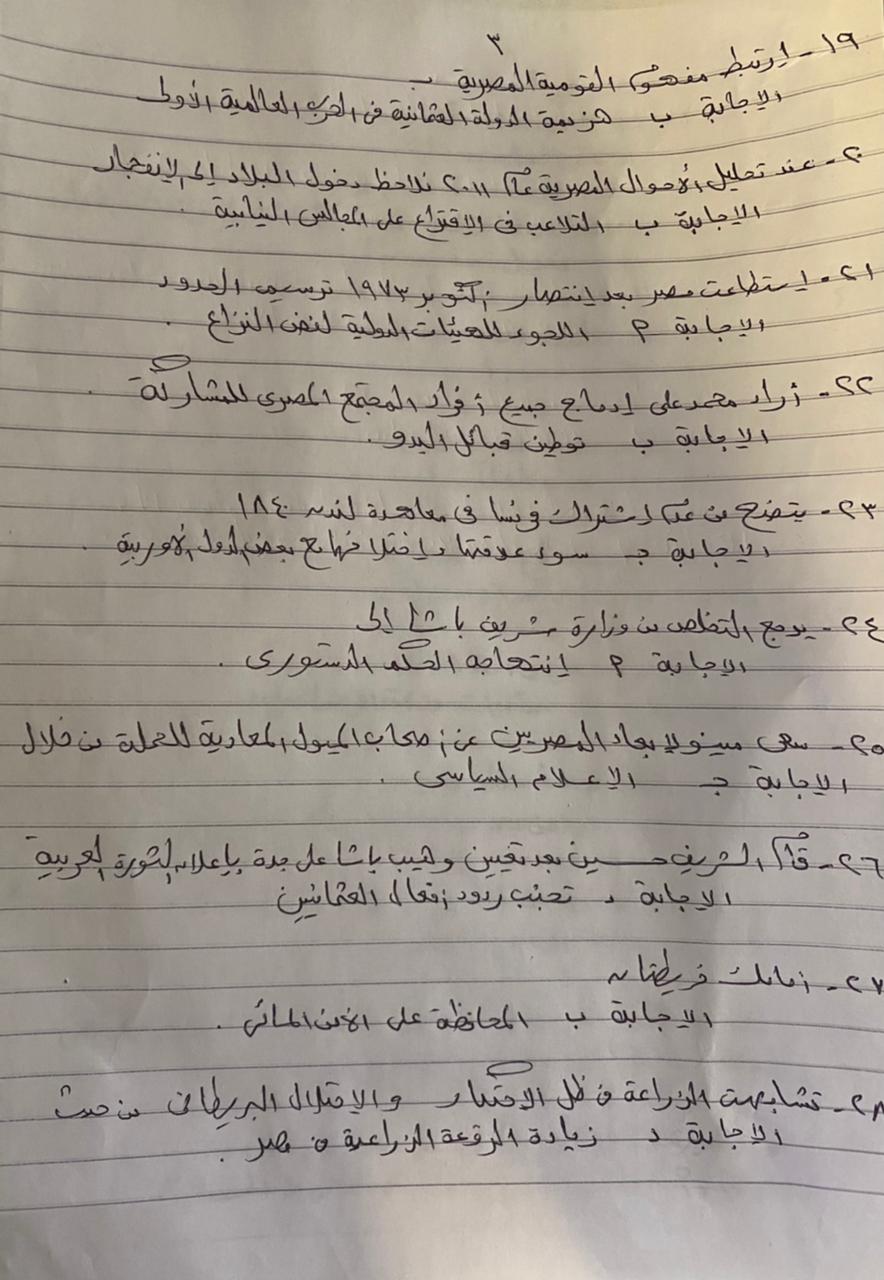 ٣
١٩- ارتبط مفهوم القومية المصرية بـ
الإجابة ب هزيمة الدولة العثمانية فى الحرب العالمية الأولى
٢٠- عند تحليل الأحوال المصرية عام ٢٠١١ نلاحظ دخول البلاد إلى الإنفجار
الإجابة ب التلاعب فى الإقتراع على المجالس النيابية .
٢١- إستطاعت مصر بعد إنتصار أكتوبر ١٩٧٣ ترسيم الحدود
الإجابة P اللجوء للهيئات الدولية لفض النزاع .
٢٢- أراد محمد على إدماج جميع أفراد المجتمع المصرى للمشاركة .
الإجابة ب توطين قبائل البدو .
٢٣- يتضح من عدم إشتراك فرنسا فى معاهدة لندن ١٨٤٠
الإجابة جـ سوء علاقتها وإختلافها مع بعض الدول الأوربية .
٢٤- يرجع التخلص من وزارة شريف باشا إلى
الإجابة P إنتهاجه الحكم الدستورى .
٢٥- سعى مينو لإبعاد المصريين عن أصحاب الميول المعادية للحملة من خلال
الإجابة جـ الإعلام السياسى .
٢٦- قام الشريف حسين بعد تعيين وهيب باشا على جدة بإعلان الثورة العربية
الإجابة د تجنب ردود أفعال العثمانيين
٢٧- أمامك خريطتان
الإجابة ب المحافظة على الأمن المائى .
٢٨- تشابهت الزراعة فى ظل الاحتكار والاحتلال البريطانى من حيث
الإجابة د زيادة الرقعة الزراعية فى مصر .